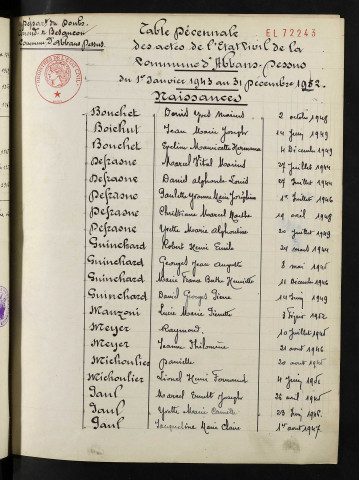 Départ. du Doubs
Canton de Besançon
Commune d'Abbans-Dessus
EL 72243
Table Décennale
des actes de l'Etat Civil de la
Commune d'Abbans-Dessus
du 1er Janvier 1943 au 31 Décembre 1952.
Naissances
Bouchet Daniel Yves 2 octobre 1948
Boichut Jean Marie Joseph 14 Juin 1949
Bouchet Eveline 4 Décembre 1949
Defrasne Marcel Vital 27 Juillet 1944
Defrasne Daniel Alphonse Louis 27 Juillet 1944
Defrasne Paulette Yvonne Marie Joséphine 1er Juillet 1946
Defrasne Christiane Marcel Marthe 19 avril 1948
Defrasne Yvette Marie Alphonsine 20 Juillet 1949
Guinchard Robert Henri Emile 24 mars 1944
Guinchard Georges Jean Auguste 8 mai 1946
Guinchard Marie France Berthe Henriette 11 Décembre 1946
Guinchard Daniel Georges Pierre 14 Juin 1949
Manzoni Lucie Marie Pierrette 3 Février 1952
Meyer Raymond. 10 Juillet 1945
Meyer Jeanne Philomène 21 août 1946
Michoulier Danielle 20 août 1945
Michoulier Lionel Henri Fernand 4 Juin 1945
Paul Marcel Ernest Joseph 26 avril 1945
Paul Yvette Marie Camille 23 Juin 1946
Paul Jacqueline Marie Claire 1er août 1947